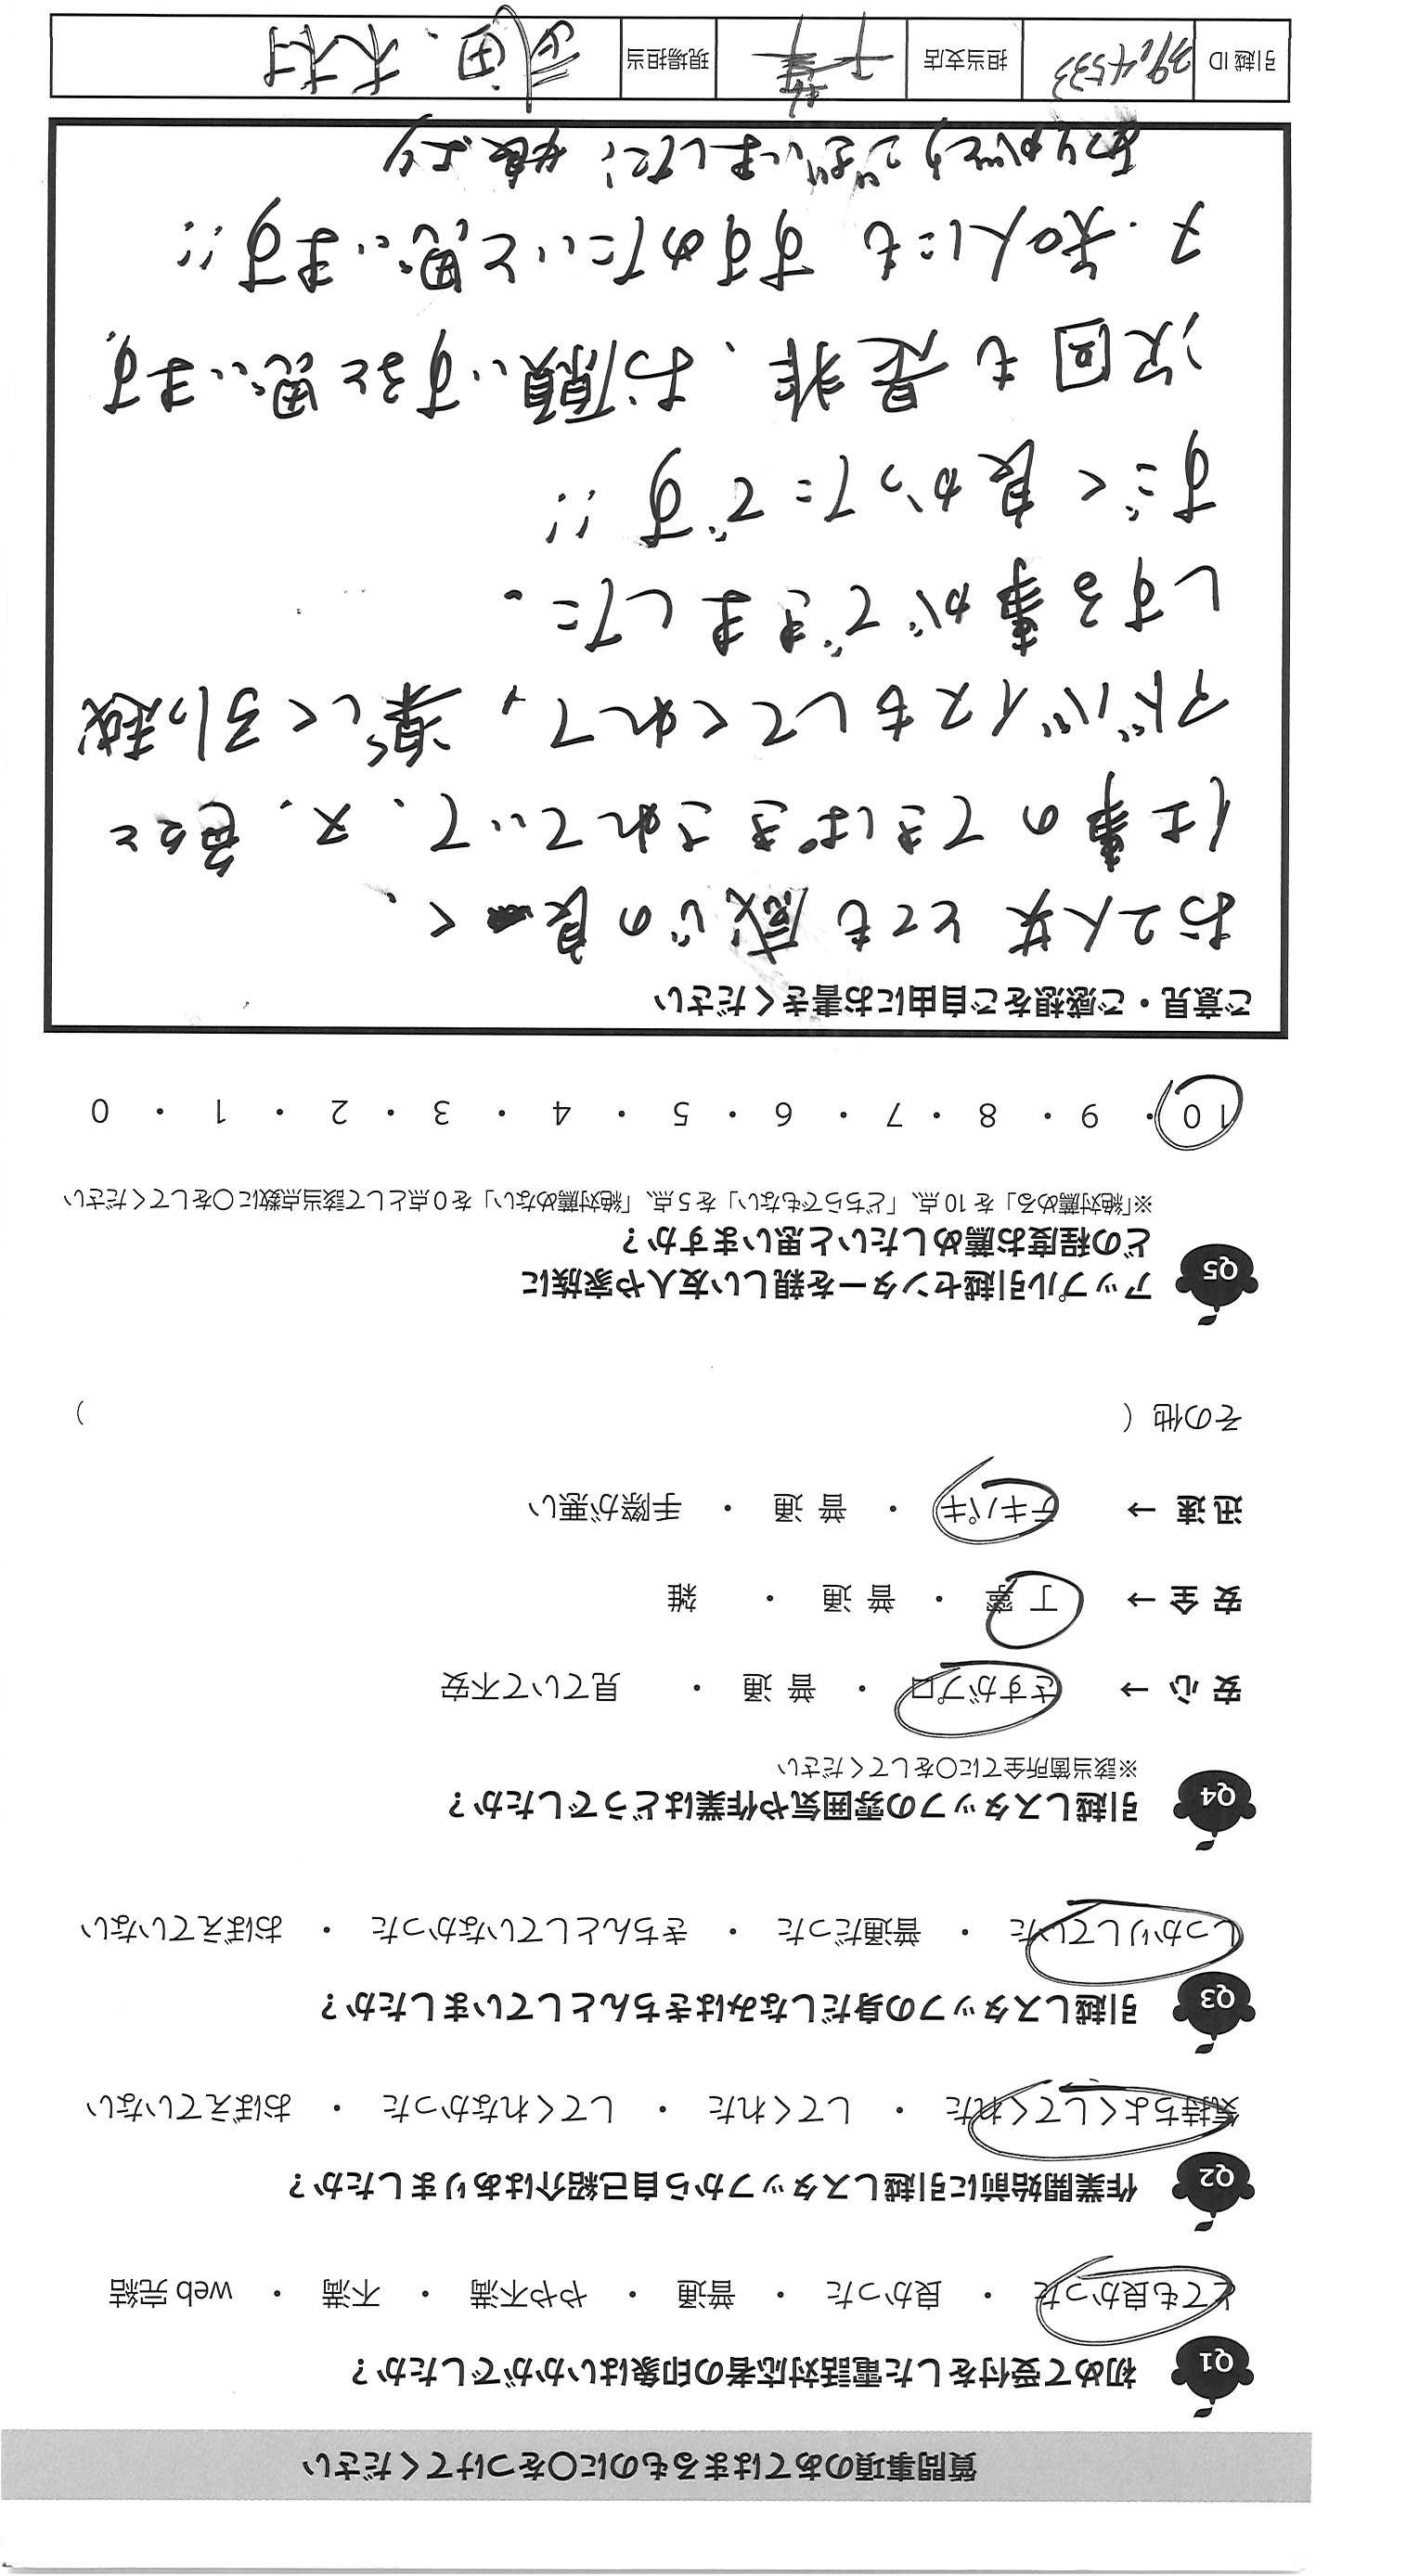 質問事項のあてはまるものに○をつけてください
Q1 初めて受付をした電話対応者の印象はいかがでしたか？
とても良かった ・ 良かった ・ 普通 ・ やや不満 ・ 不満 ・ web 完結
Q2 作業開始前に引越しスタッフから自己紹介はありましたか？
気持ちよくしてくれた ・ してくれた ・ してくれなかった ・ おぼえていない
Q3 引越しスタッフの身だしなみはきちんとしていましたか？
しっかりしていた ・ 普通だった ・ きちんとしていなかった ・ おぼえていない
Q4 引越しスタッフの雰囲気や作業はどうでしたか？
※該当箇所全てに○をしてください
安 心 → さすがプロ ・ 普 通 ・ 見ていて不安
安 全 → 丁 寧 ・ 普 通 ・ 雑
迅 速 → テキパキ ・ 普 通 ・ 手際が悪い
その他（ ）
Q5 アップル引越センターを親しい友人や家族に
どの程度お薦めしたいと思いますか？
※「絶対薦める」を 10 点、「どちらでもない」を 5 点、「絶対薦めない」を 0 点として該当点数に○をしてください
10 ・ 9 ・ 8 ・ 7 ・ 6 ・ 5 ・ 4 ・ 3 ・ 2 ・ 1 ・ 0
ご意見・ご感想をご自由にお書きください
お2人共とても感じの良く、
仕事のてきぱきされていて、又、色々と
アドバイスもしてくれて、楽しく引っ越
しする事ができました。
すごく良かったです!!
次回も是非、お願いすると思います。
又、知人にもすすめたいと思います!!
ありがとうございました。娘より
引越 ID 担当支店 千葉 現場担当 武田、木村